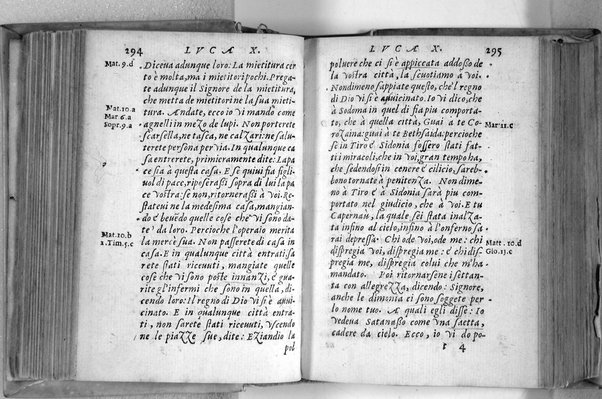 294 LVCA X.
Mat. 9.d
.Diceua adunque loro: La mietitura cer
to è molta, ma i mietitori pochi. Prega-
te adunque il Signore de la mietitura,
che metta de mietitori ne la sua mieti-
Mat. 10.a
tura. Andate, ecco io vi mando come
Mat 6.a
agnelli in mezo di lupi. Non porterete
Sopr. 9.a
scarsella, ne tasca, ne calzari: ne salu-
terete persona per via. In qualunque ca
sa entrerete, primieramente dite: La pa
ce sia a questa casa. E se quiui sia figli-
uol di pace, riposerassi sopra di lui la pa
ce vostra: se non, ritornerassi à voi. Re-
stateui ne la medesima casa, mangian-
do e beuēdo quelle cose che vi sono da-
Mat. 10.b
te da loro. Percioche l'operaio merita
1. Tim. 5.c
la mercè sua. Non passerete di casa in
casa. E in qualunque città entrati, sa
rete stati riceuuti, mangiate quelle
cose che vi sono poste innanzi, e gua-
rite gl'infermi che sono in quella, di-
cendo loro: Il regno di Dio vi si è auui
cinato. E in qualunque città entra-
ti, non sarete stati riceuuti, vscendo
ne le piazze sue, dite: Eziandio la
pol
LVCA X. 295
poluere che ci si è appiccata addosso de
la vostra città, la scuotiamo à voi.
Nondimeno sappiate questo, che'l regno
di Dio vi si è auuicinato. Io vi dico, che
à Sodoma in quel dì fia piu comporta-
to, che à quella città, Guai à te Co-
Mat. 11.c
rozaina: guai à te Bethsaida: percioche
se in Tiro è Sidonia fossero stati fat-
ti i miracoli, che in voi, gran tempo ha,
che sedendosi in cenere è cilicio, sareb-
bono tornate à penitenza. Non dime-
no à Tiro è à Sidonia sarà piu com-
portato nel giudicio, che à voi. E tu
Capernau, la quale sei stata inalza-
ta infino al cielo, infino à l'inferno sa
Matt. 10.d
rai depressa. Chi ode voi, ode me: chi
Gio. 13.c
dispregia voi, dispregia me. è chi dis-
pregia me, dispregia colui che m'ha
mandato. Poi ritornarsene i settan-
ta con allegrezza, dicendo: Signore,
anche le dimonia ci sono soggette per
lo nome tuo. A quali egli disse: Io
vedeua Satanasso come vna saetta,
cadere da cielo. Ecco, io vi do po-
t 4